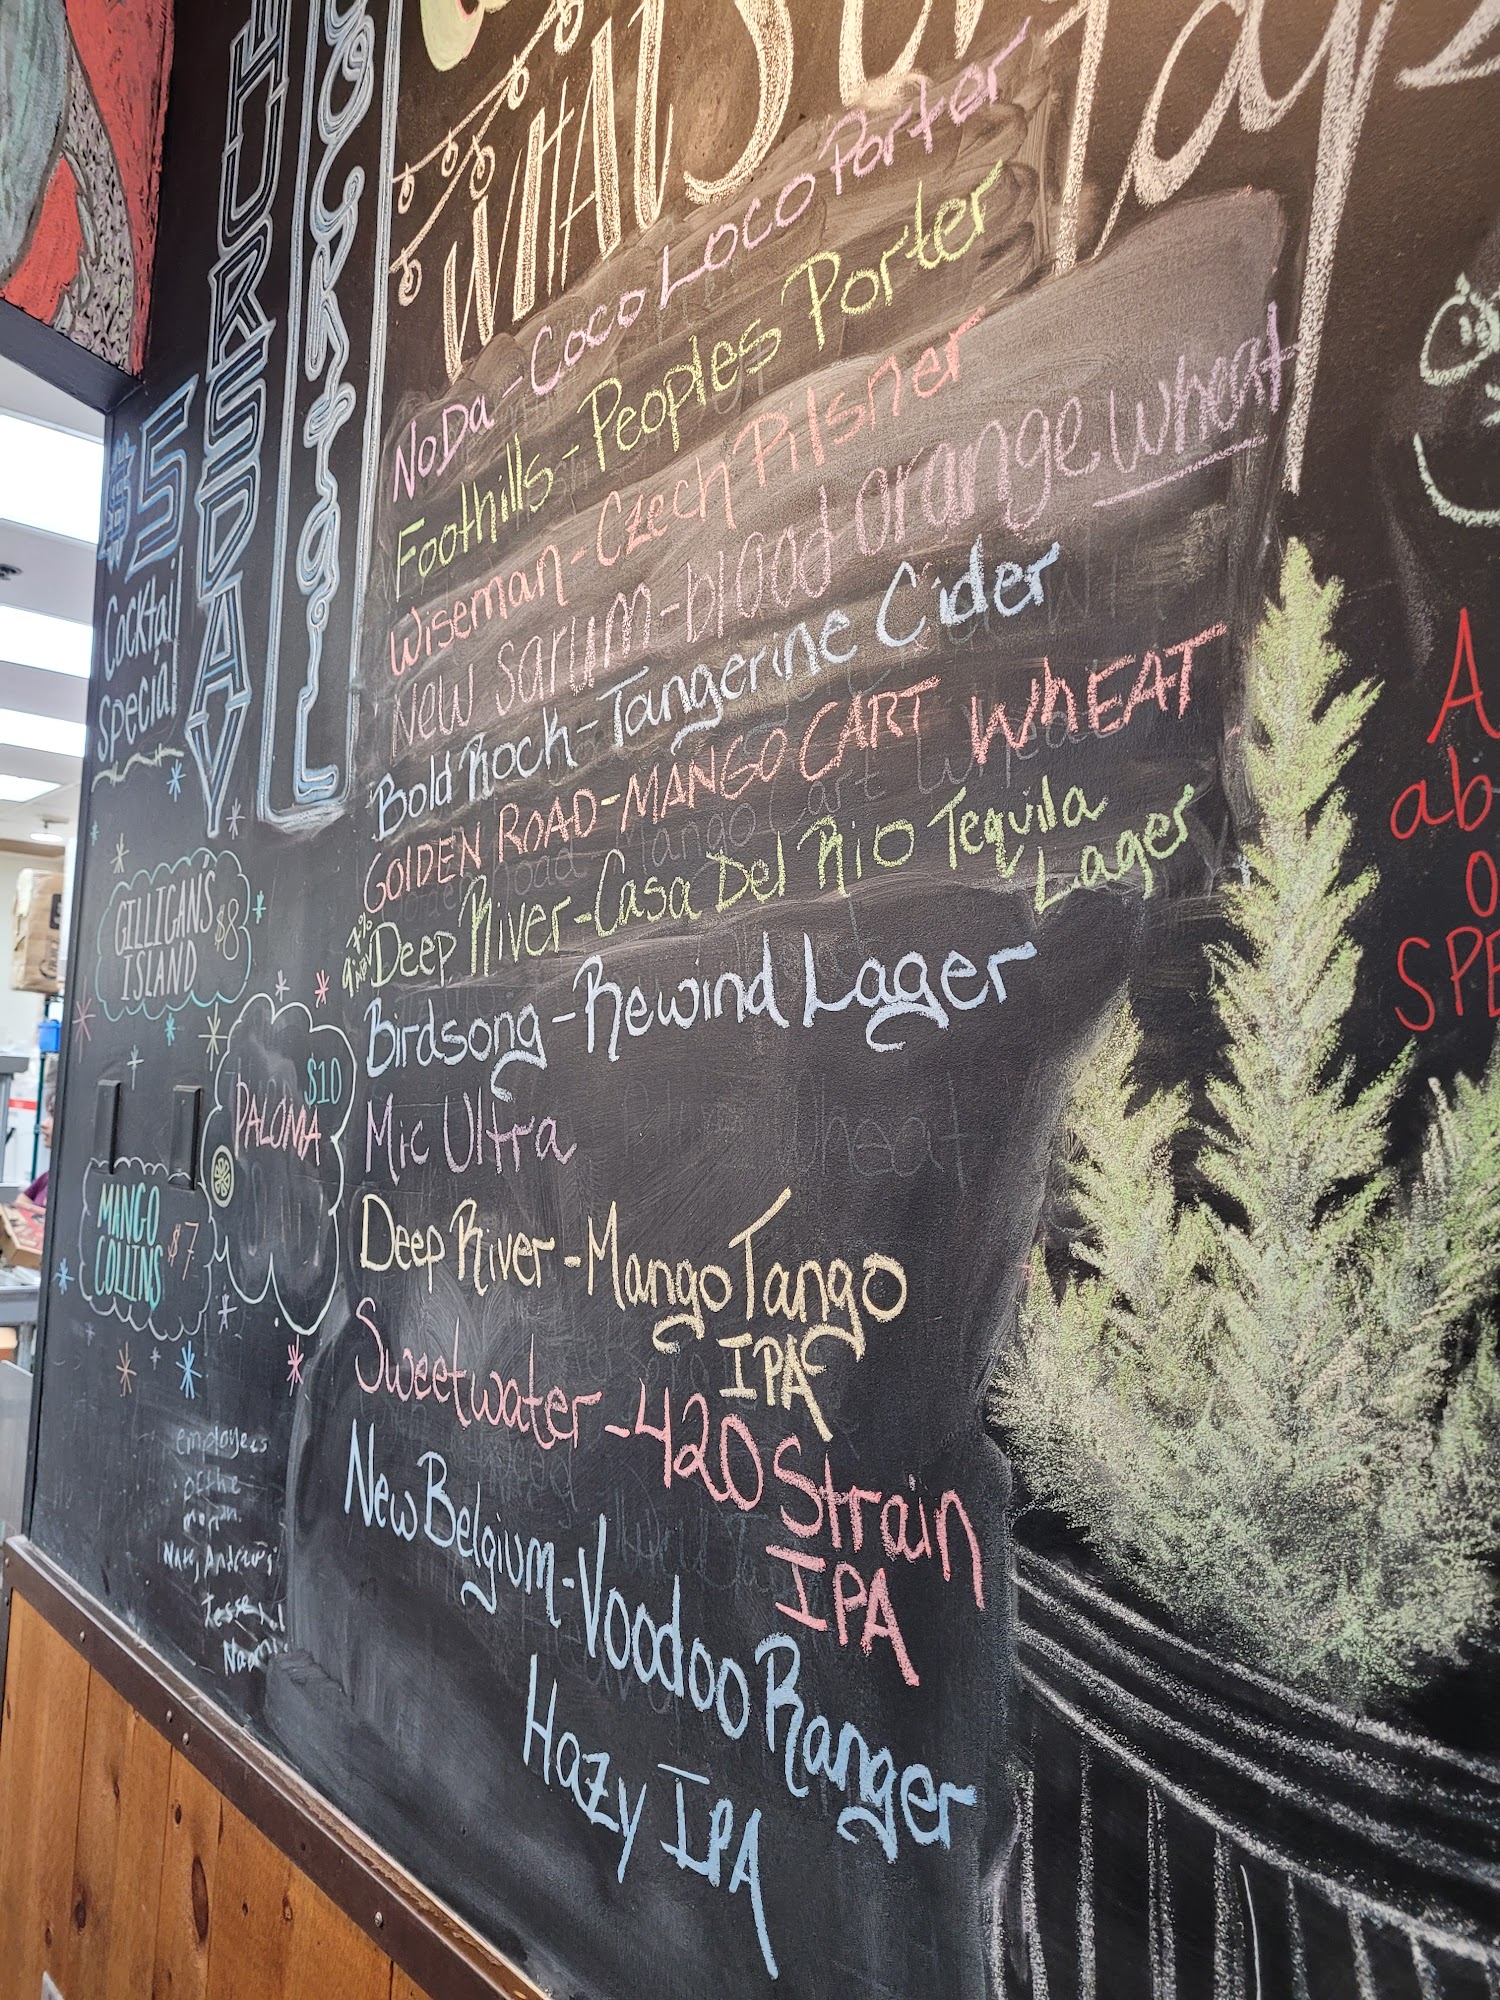 WHAT'S on Taps
NoDa - Coco Loco Porter
Foothills - Peoples Porter
Wiseman - Czech Pilsner
New Sarum - blood orange wheat
Bold Rock - Tangerine Cider
GOLDEN ROAD - MANGO CART WHEAT
9.7% ABV
Deep River - Casa Del Rio Tequila
Lager
Birdsong - Rewind Lager
Mic Ultra
Deep River - Mango Tango
IPA
Sweetwater - 420 Strain
IPA
New Belgium - Voodoo Ranger
Hazy IPA
THURSDAY
Cocktail
$5
Cocktail
Special
GILLIGAN'S
ISLAND
$8
PALOMA
$10
MANGO
COLLINS
$7
employees
of the
Nate, Andrew,
Jesse
Naomi
A
ab
o
SPE